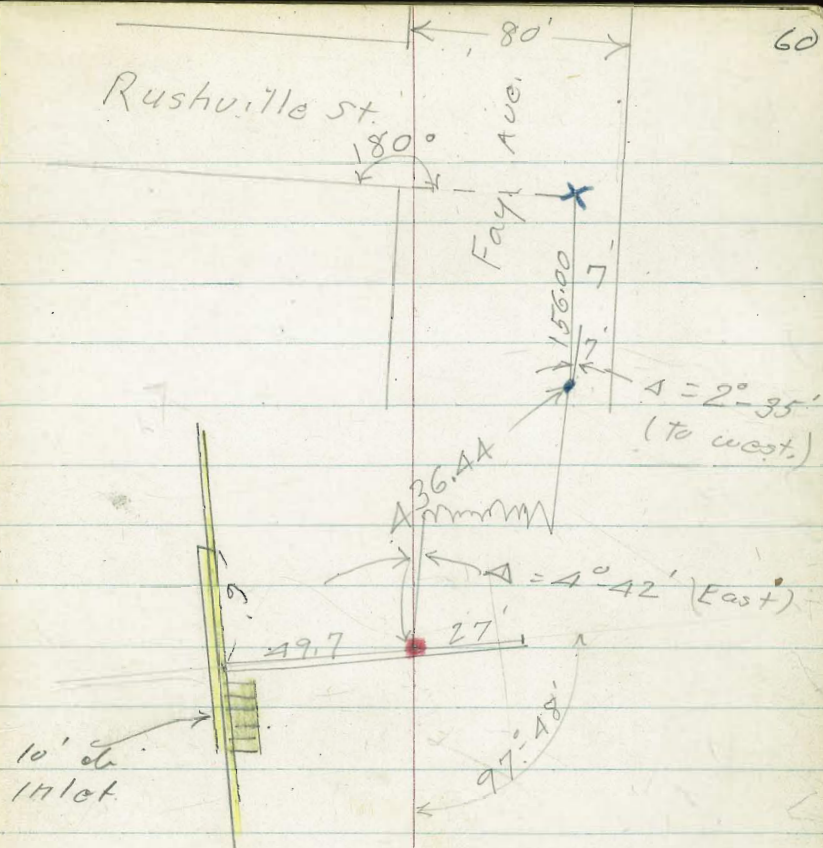 60
80'
Rushville St.
180°
Fay Ave.
156.00
7'
7'
Δ = 2°-35'
(to west.)
36.44
Δ = 4°-42' (East)
9'
49.7
27'
97°-48'
10'
inlet